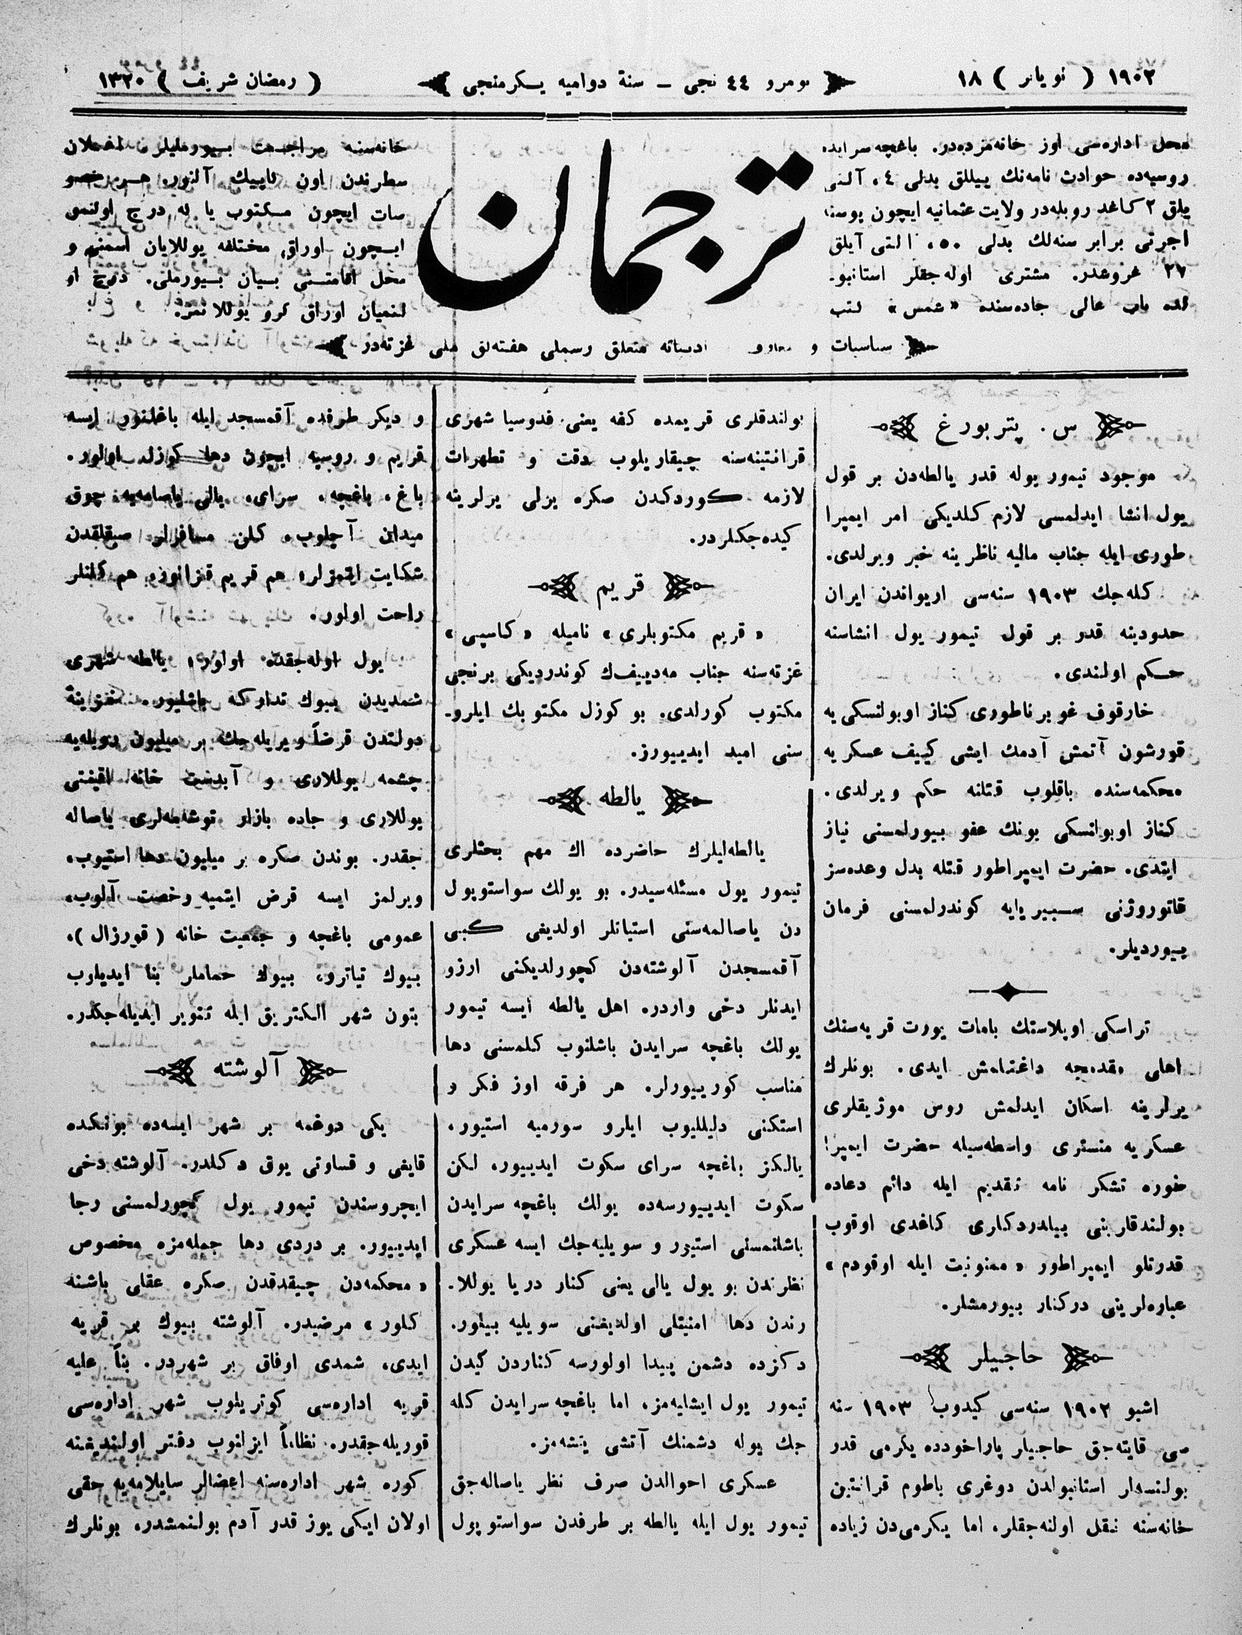 ١٩٠٢ ( نويابر ) ١٨
نومرو ٤٤ نجی – سنۀ دواميه يكرمنجی
( رمضان شريف ) ١٣٢٠
محل اداره‌سی اوز خانه‌مزده‌در. باغچه‌سرايده
روسيه‌ده حوادث نامه‌نك ييللق بدلی ٤، آلتی
يلق ٢ كاغد روبله‌در ولايت عثمانيه ايچون پوسته
اجرتی برابر سنه‌لك بدلی ٥٠، التی آيلق
٢٧ غروشدر. مشتری اوله‌جقلر استانبو‍
لده باب عالی جاده‌سنده «شمس» كتب
ترجمان
خانه‌سنه مراجعت بيورمليلر. اعلان
سطرندن اون كاپيك آلنور. هر خصو
صات ايچون مكتوب يا كه درج اولنمق
ايچون اوراق مختلفه يوللايان اسمنی و
محل اقامتنی بيان بيورملی. درج او
لنميان اوراق كرو يوللانمز.
سياسيات و معارف ادبياته متعلق رسملی هفته‌لق ملی غزته‌در
س. پتربورغ
موجود تيمور يوله قدر يالطه‌دن بر قول
يول انشا ايدلمسی لازم كلديكی امر ايمپرا
طوری ايله جناب ماليه ناظرينه خبر ويرلدی.
كله‌جك ١٩٠٣ سنه‌سی اريواندن ايران
حدودينه قدر بر قول تيمور يول انشاسنه
حكم اولندی.
خارقوف غوبرناطوری كناز اوبولنسكی يه
قورشون آتمش آدمك ايشی كييف عسكريه
محكمه‌سنده باقلوب قتلنه حكم ويرلدی.
كناز اوبولنسكی بونك عفو بيورلمسنی نياز
ايتدی. حضرت ايمپراطور قتله بدل وعده‌سز
قاتورژنی سيبيريايه كوندرلمسنی فرمان
بيورديلر.
تراسكی اوبلاستك بامات يورت قريه‌سنك
اهلی مقدمجه داغتلمش ايدی. بونلرك
يرلرينه اسكان ايدلمش روس موژيقلری
عسكريه منستری واسطه‌سيله حضرت ايمپرا
طوره تشكر نامه تقديم ايله دائم دعاده
بولندقلرينی بيلدردكلری كاغدی اوقوب
قدرتلو ايمپراطور «ممنونيت ايله اوقودم»
عباره‌لرينی دركنار بيورمشلر.
حاجيلر
اشبو ١٩٠٢ سنه‌سی كيدوب ١٩٠٣ سنه
سی قايته‌جق حاجيلر پاراخودده يكرمی قدر
بولنسه‌لر استانبولدن دوغری باطوم قرانتين
خانه‌سنه نقل اولنه‌جقلر، اما يكرمی‌دن زياده
بولندقلری قريمده كفه يعنی فدوسيا شهری
قرانتينه‌سنه چيقاريلوب دقت و تطهرات
لازمه كوردكدن صكره يزلی يرلرينه
كيده‌جكلردر.
قريم
«قريم مكتوبلری» ناميله «كاسپی»
غزته‌سنه جناب مه‌دييفك كوندرديكی برنجی
مكتوب كورلدی. بو كوزل مكتوبك ايلرو‍
سنی اميد ايدييورز.
يالطه
يالطه‌ليلرك حاضرده اك مهم بحثلری
تيمور يول مسئله‌سيدر. بو يولك سواستوپول
دن ياصالمه‌سنی استيانلر اولديغی كبی
آقمسجدن آلوشته‌دن كچورلديكنی ارزو
ايدنلر دخی واردر. اهل يالطه ايسه تيمور
يولك باغچه سرايدن باشلنوب كلمسنی دها
مناسب كورييورلر. هر فرقه اوز فكر و
استكنی دليلليوب ايلرو سورميه استيور.
يالكز باغچه سرای سكوت ايدييور، لكن
سكوت ايدييورسه‌ده يولك باغچه سرايدن
باشلنمسنی استيور و سويليه‌جك ايسه عسكری
نظرندن بو يول يالی يعنی كنار دريا يوللا‍
رندن دها امنيتلی اولديغنی سويليه بيلور.
دكزده دشمن پيدا اولورسه كناردن كيدن
تيمور يول ايشليه‌مز، اما باغچه‌سرايدن كله
جك يوله دشمنك آتشی يتشه‌مز.
عسكری احوالدن صرف نظر ياصاله‌جق
تيمور يول ايله يالطه بر طرفدن سواستوپول
و ديكر طرفده آقمسجد ايله باغلنور ايسه
قريم و روسيه ايچون دها كوزل اولور.
باغ، باغچه، سرای، يالی ياصامه‌يه چوق
ميدان آچلوب، كلن مسافرلر صيقلقدن
شكايت ايتمزلر؛ هم قريم قزانور، هم كلنلر
راحت اولور.
يول اوله‌جقده اولور؛ يالطه شهری
شمديدن بيوك تداركه باشليور. خزينۀ
دولتدن قرضاً ويريله‌جك بر ميليون روبله‌يه
چشمه يوللاری و آبدست خانه اقيفتی
يوللاری و جاده بازار توشه‌مه‌لری ياصاله
جقدر. بوندن صكره بر ميليون دها استيوب،
ويرلمز ايسه قرض ايتميه رخصت آلوب،
عمومی باغچه و جمعيت خانه (قورزال)،
بيوك تياترو، بيوك حماملر بنا ايديلوب
بتون شهر الكتريق ايله تنوير ايديله‌جكدر.
آلوشته
يكی دوغمه بر شهر ايسه‌ده بونكده
قايغی و قساوتی يوق دكلدر. آلوشته دخی
ايچروسندن تيمور يول كچورلمسنی رجا
ايدييور. بر دردی دها جمله‌مزه مخصوص
«محكمه‌دن چيقدقدن صكره عقلی باشنه
كلور» مرضيدر. آلوشته بيوك بر قريه
ايدی، شمدی اوفاق بر شهردر. بناً عليه
قريه اداره‌سی كوتريلوب شهر اداره‌سی
قوريله‌جقدر. نظاماً ايزلنوب دفتر اولنديغنه
كوره شهر اداره‌سنه اعضالر سايلامه‌يه حقی
اولان ايكی يوز قدر آدم بولنمشدر، بونلرك